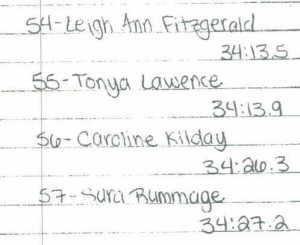 54-Leigh Ann Fitzgerald
34:13.5
55-Tonya Lawence
34:13.9
56-Caroline Kilday
34:26.3
57-Sara Rummage
34:27.2